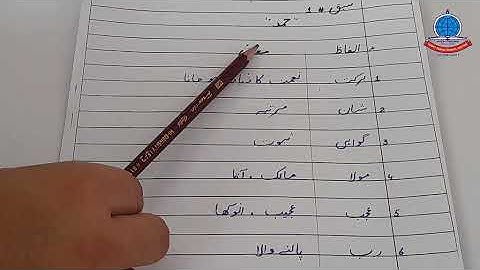 سبق # 1
"حمد"
الفاظ
1 برکت نعمت کا زیادہ ہو جانا
2 شان مرتبہ
3 گواہی ثبوت
4 مولا مالک ، آقا
5 عجب عجیب ، انوکھا
6 رب پالنے والا